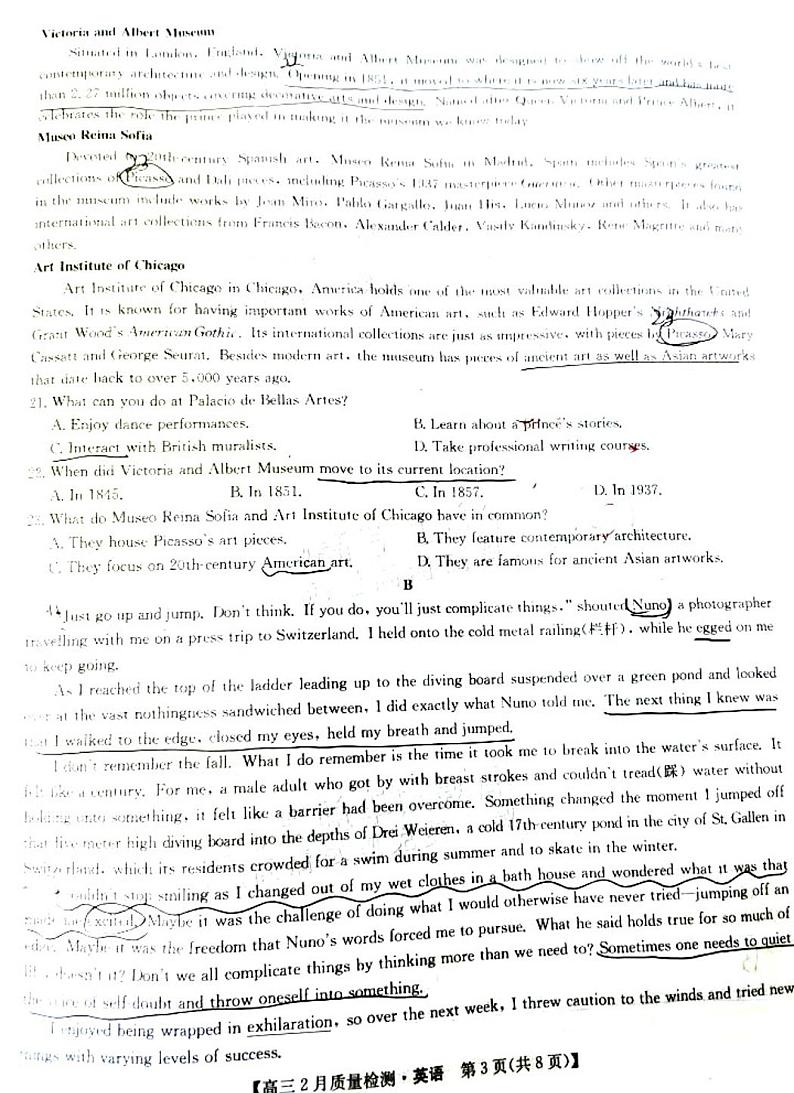 Victoria and Albert Museum
Situated in London, England, Victoria and Albert Museum was designed to show off the world's best
contemporary architecture and design. Opening in 1851, it moved to where it is now six years later and has more
than 2.27 million objects covering decorative arts and design. Named after Queen Victoria and Prince Albert, it
celebrates the role the prince played in making it the museum we know today.
Museo Reina Sofia
Devoted to 20th-century Spanish art, Museo Reina Sofia in Madrid, Spain includes Spain's greatest
collections of Picasso and Dali pieces, including Picasso's 1937 masterpiece Guernica. Other masterpieces found
in the museum include works by Joan Miro, Pablo Gargallo, Juan His, Lucio Munoz and others. It also has
international art collections from Francis Bacon, Alexander Calder, Vasily Kandinsky, Rene Magritte and many
others.
Art Institute of Chicago
Art Institute of Chicago in Chicago, America holds one of the most valuable art collections in the United
States. It is known for having important works of American art, such as Edward Hopper's Nighthawks and
Grant Wood's American Gothic. Its international collections are just as impressive, with pieces by Picasso, Mary
Cassatt and George Seurat. Besides modern art, the museum has pieces of ancient art as well as Asian artworks
that date back to over 5,000 years ago.
21. What can you do at Palacio de Bellas Artes?
A. Enjoy dance performances. B. Learn about a prince's stories.
C. Interact with British muralists. D. Take professional writing courses.
22. When did Victoria and Albert Museum move to its current location?
A. In 1845. B. In 1851. C. In 1857. D. In 1937.
23. What do Museo Reina Sofia and Art Institute of Chicago have in common?
A. They house Picasso's art pieces. B. They feature contemporary architecture.
C. They focus on 20th-century American art. D. They are famous for ancient Asian artworks.
B
"Just go up and jump. Don't think. If you do, you'll just complicate things," shouted Nuno, a photographer
travelling with me on a press trip to Switzerland. I held onto the cold metal railing(栏杆), while he egged on me
to keep going.
As I reached the top of the ladder leading up to the diving board suspended over a green pond and looked
over at the vast nothingness sandwiched between, I did exactly what Nuno told me. The next thing I knew was
that I walked to the edge, closed my eyes, held my breath and jumped.
I don't remember the fall. What I do remember is the time it took me to break into the water's surface. It
felt like a century. For me, a male adult who got by with breast strokes and couldn't tread(踩) water without
holding onto something, it felt like a barrier had been overcome. Something changed the moment I jumped off
that five-meter high diving board into the depths of Drei Weieren, a cold 17th-century pond in the city of St. Gallen in
Switzerland, which its residents crowded for a swim during summer and to skate in the winter.
I couldn't stop smiling as I changed out of my wet clothes in a bath house and wondered what it was that
made me excited. Maybe it was the challenge of doing what I would otherwise have never tried—jumping off an
edge. Maybe it was the freedom that Nuno's words forced me to pursue. What he said holds true for so much of
life, doesn't it? Don't we all complicate things by thinking more than we need to? Sometimes one needs to quiet
the voice of self-doubt and throw oneself into something.
I enjoyed being wrapped in exhilaration, so over the next week, I threw caution to the winds and tried new
things with varying levels of success.
【高三2月质量检测·英语 第3页(共8页)】